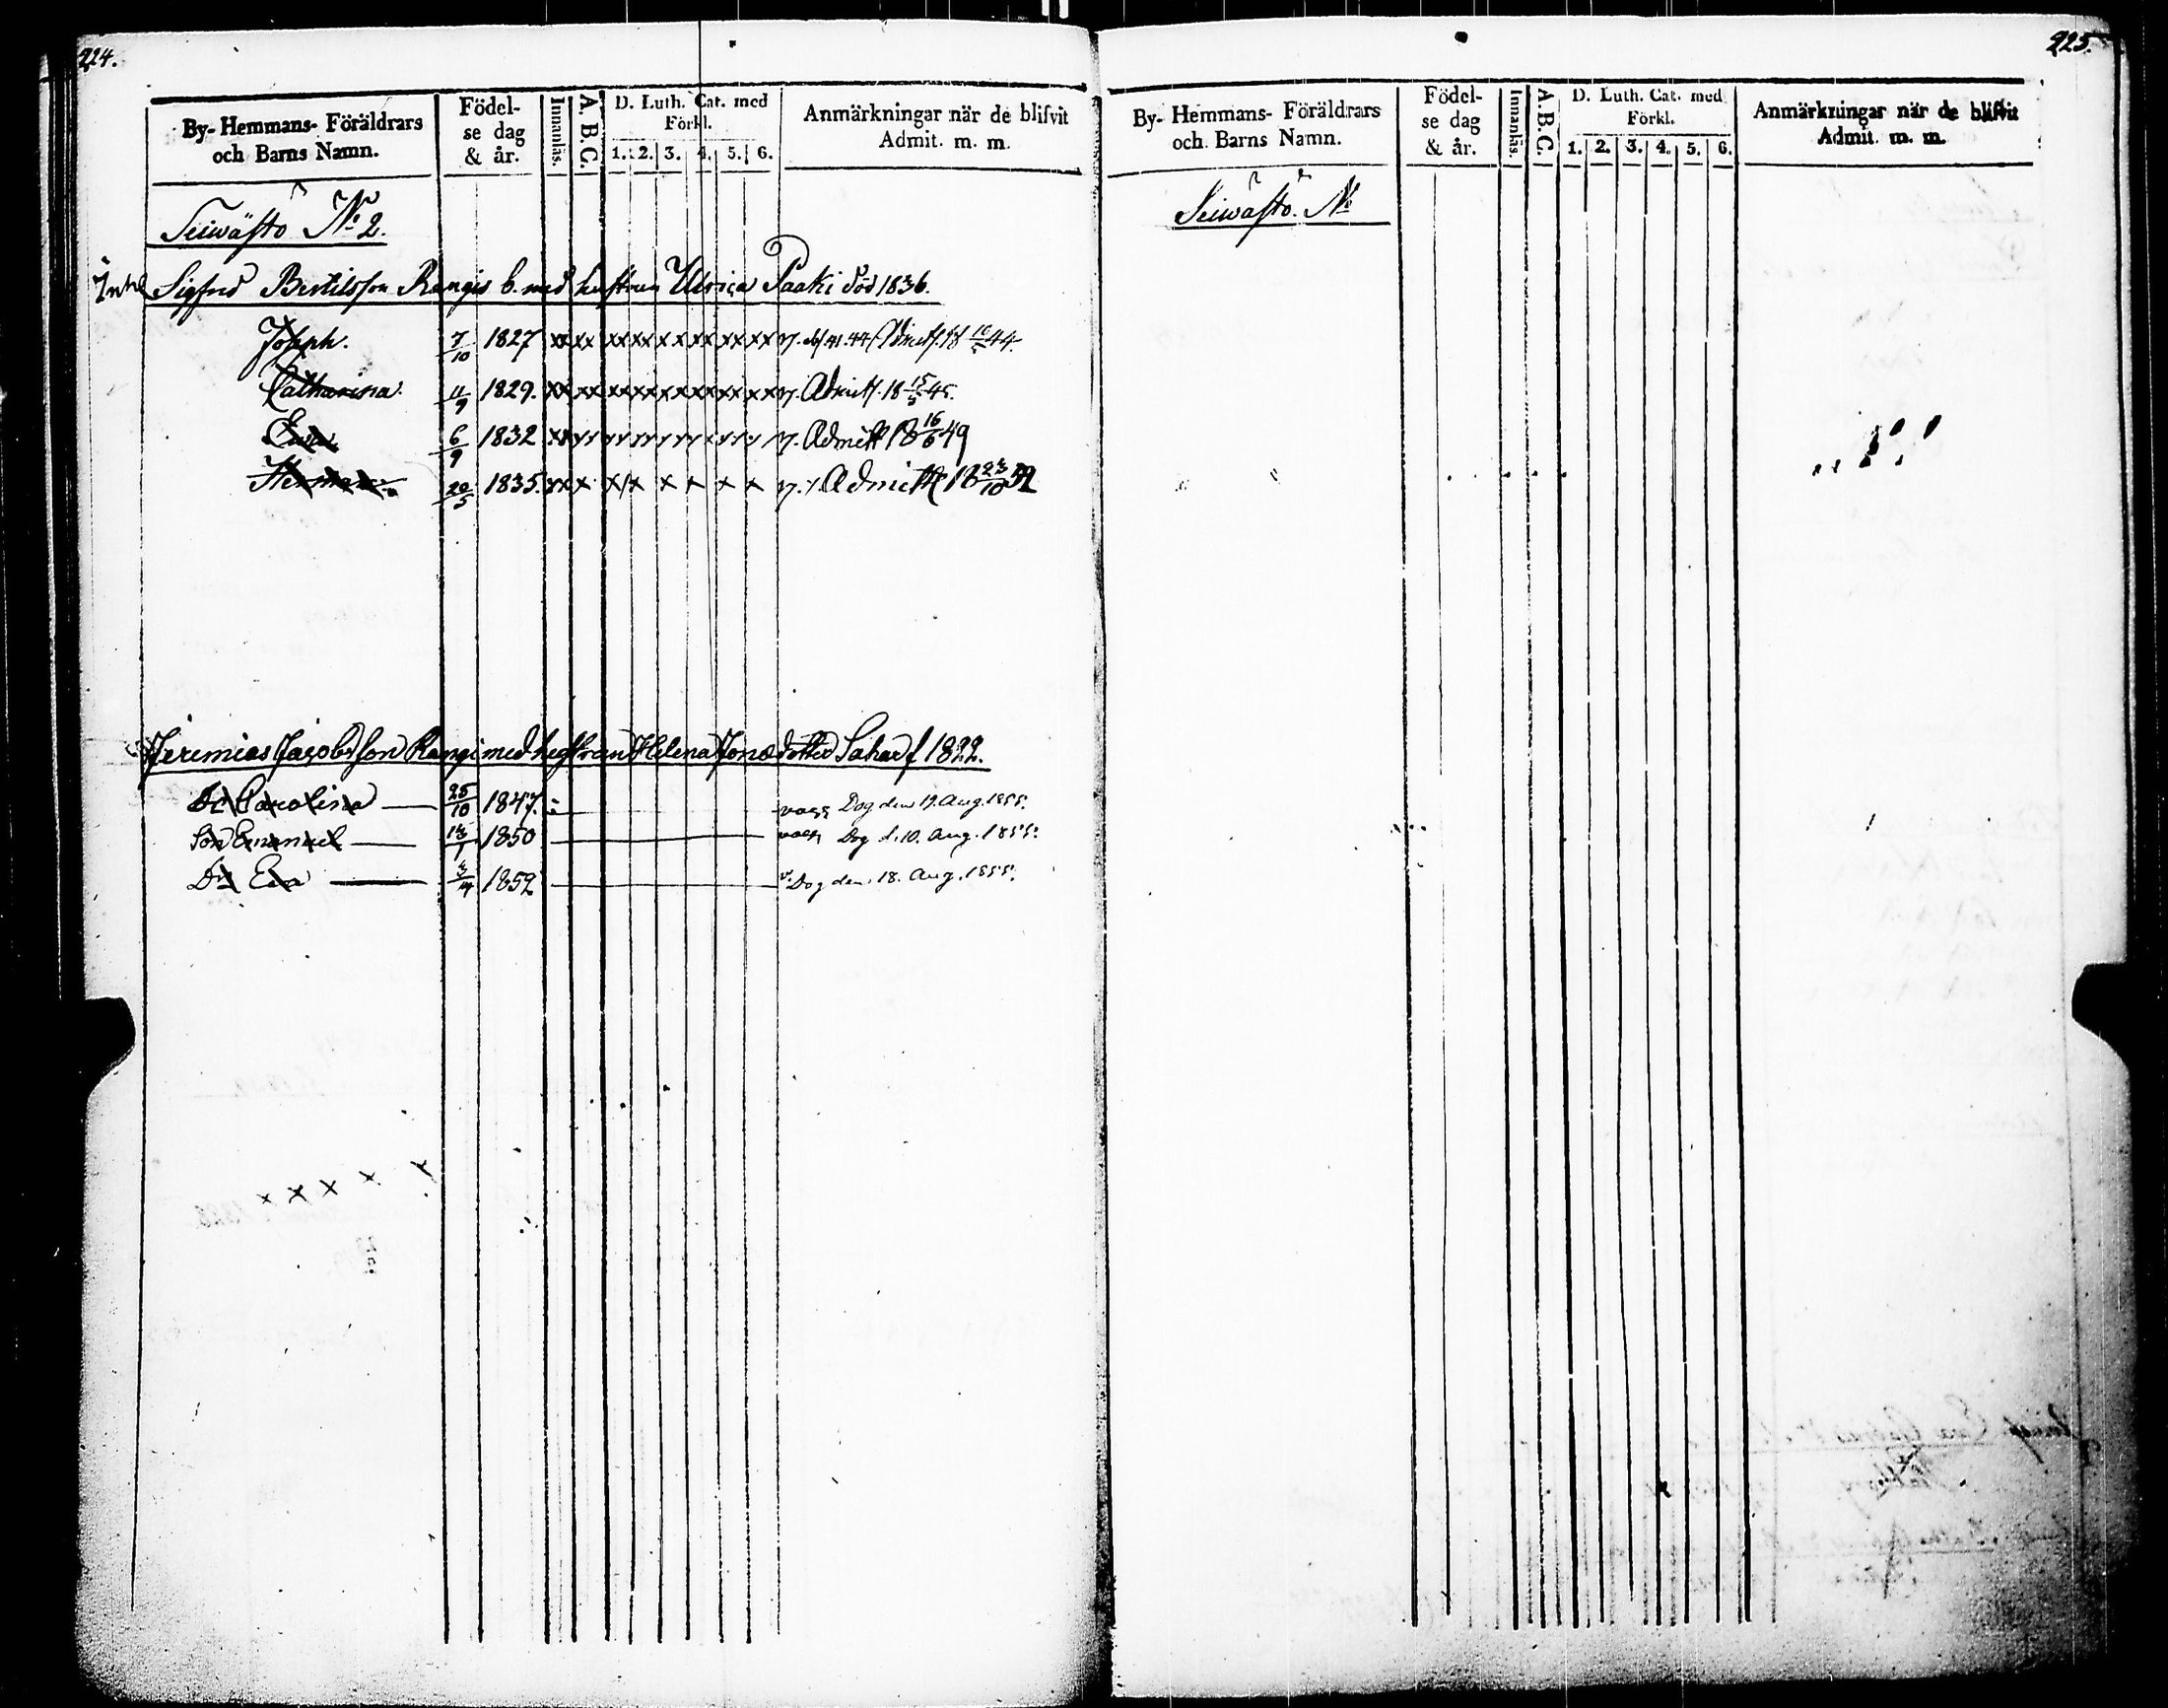 224.
By- Hemmans- Föräldrars
och Barns Namn.
Födel-
se dag
& år.
Innanläs.
A. B. C.
D. Luth. Cat. med
Förkl.
1. 2. 3. 4. 5. 6.
Anmärkningar när de blifvit
Admit. m. m.
Seiwästö No 2.
Inh. Sigfred Bertilsson Rangi b. med hustrun Ulrica Paaki död 1836.
Joseph. 7/10 1827 xx xx xx xx x x x xx xx
Catharina. 11/9 1829. xx xx Admitt. 18 15/5 45.
Ewa 6/9 1832 Admitt 18 16/6 49
Herman. 20/5 1835. Admitt 18 23/10 52
Jeremias Jacobsson Rangi med hustrun Helena Jonædotter f 1822.
Dr Carolina 25/10 1847. Dog den 19. Aug. 1855.
Son Emanuel 13/1 1850 Dog d. 10. Aug. 1855.
Dr Eva 3/4 1852 Dog den 18. Aug. 1855.
x x x x x
225.
By- Hemmans- Föräldrars
och Barns Namn.
Födel-
se dag
& år.
Innanläs.
A. B. C.
D. Luth. Cat. med
Förkl.
1. 2. 3. 4. 5. 6.
Anmärkningar när de blifvit
Admit. m. m.
Seiwästö. No